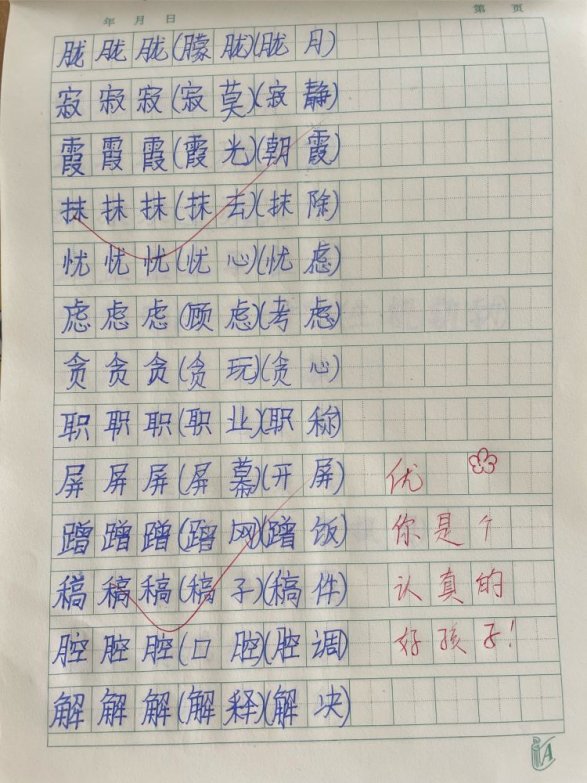 年 月 日 第 页
胧 胧 胧(朦胧)(胧月)
寂 寂 寂(寂莫)(寂静)
霞 霞 霞(霞光)(朝霞)
抹 抹 抹(抹去)(抹除)
忧 忧 忧(忧心)(忧虑)
虑 虑 虑(顾虑)(考虑)
贪 贪 贪(贪玩)(贪心)
职 职 职(职业)(职称)
屏 屏 屏(屏幕)(开屏) 优
蹭 蹭 蹭(蹭网)(蹭饭) 你是个
稿 稿 稿(稿子)(稿件) 认真的
腔 腔 腔(口腔)(腔调) 好孩子!
解 解 解(解释)(解决)